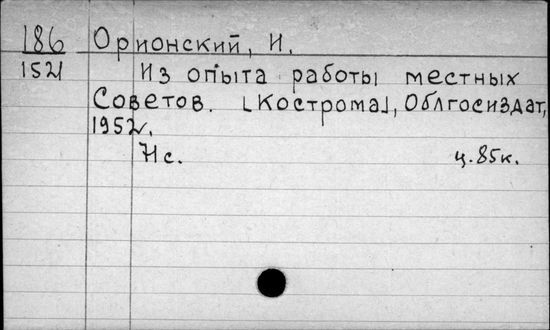 186 Орионский, И.
1521 Из опыта работы местных
Советов. [Кострома], Облгосиздат,
1952.
71 с. ц. 85к.